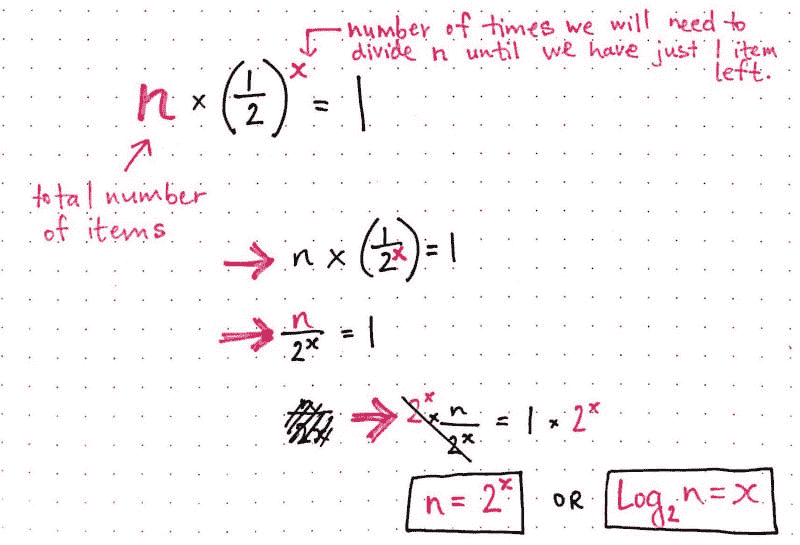 number of times we will need to
divide n until we have just 1 item
left.
n × (1/2)^x = 1
total number
of items
→ n × (1/2^x) = 1
→ n/2^x = 1
→ 2^x × n/2^x = 1 × 2^x
n = 2^x OR Log₂n = x